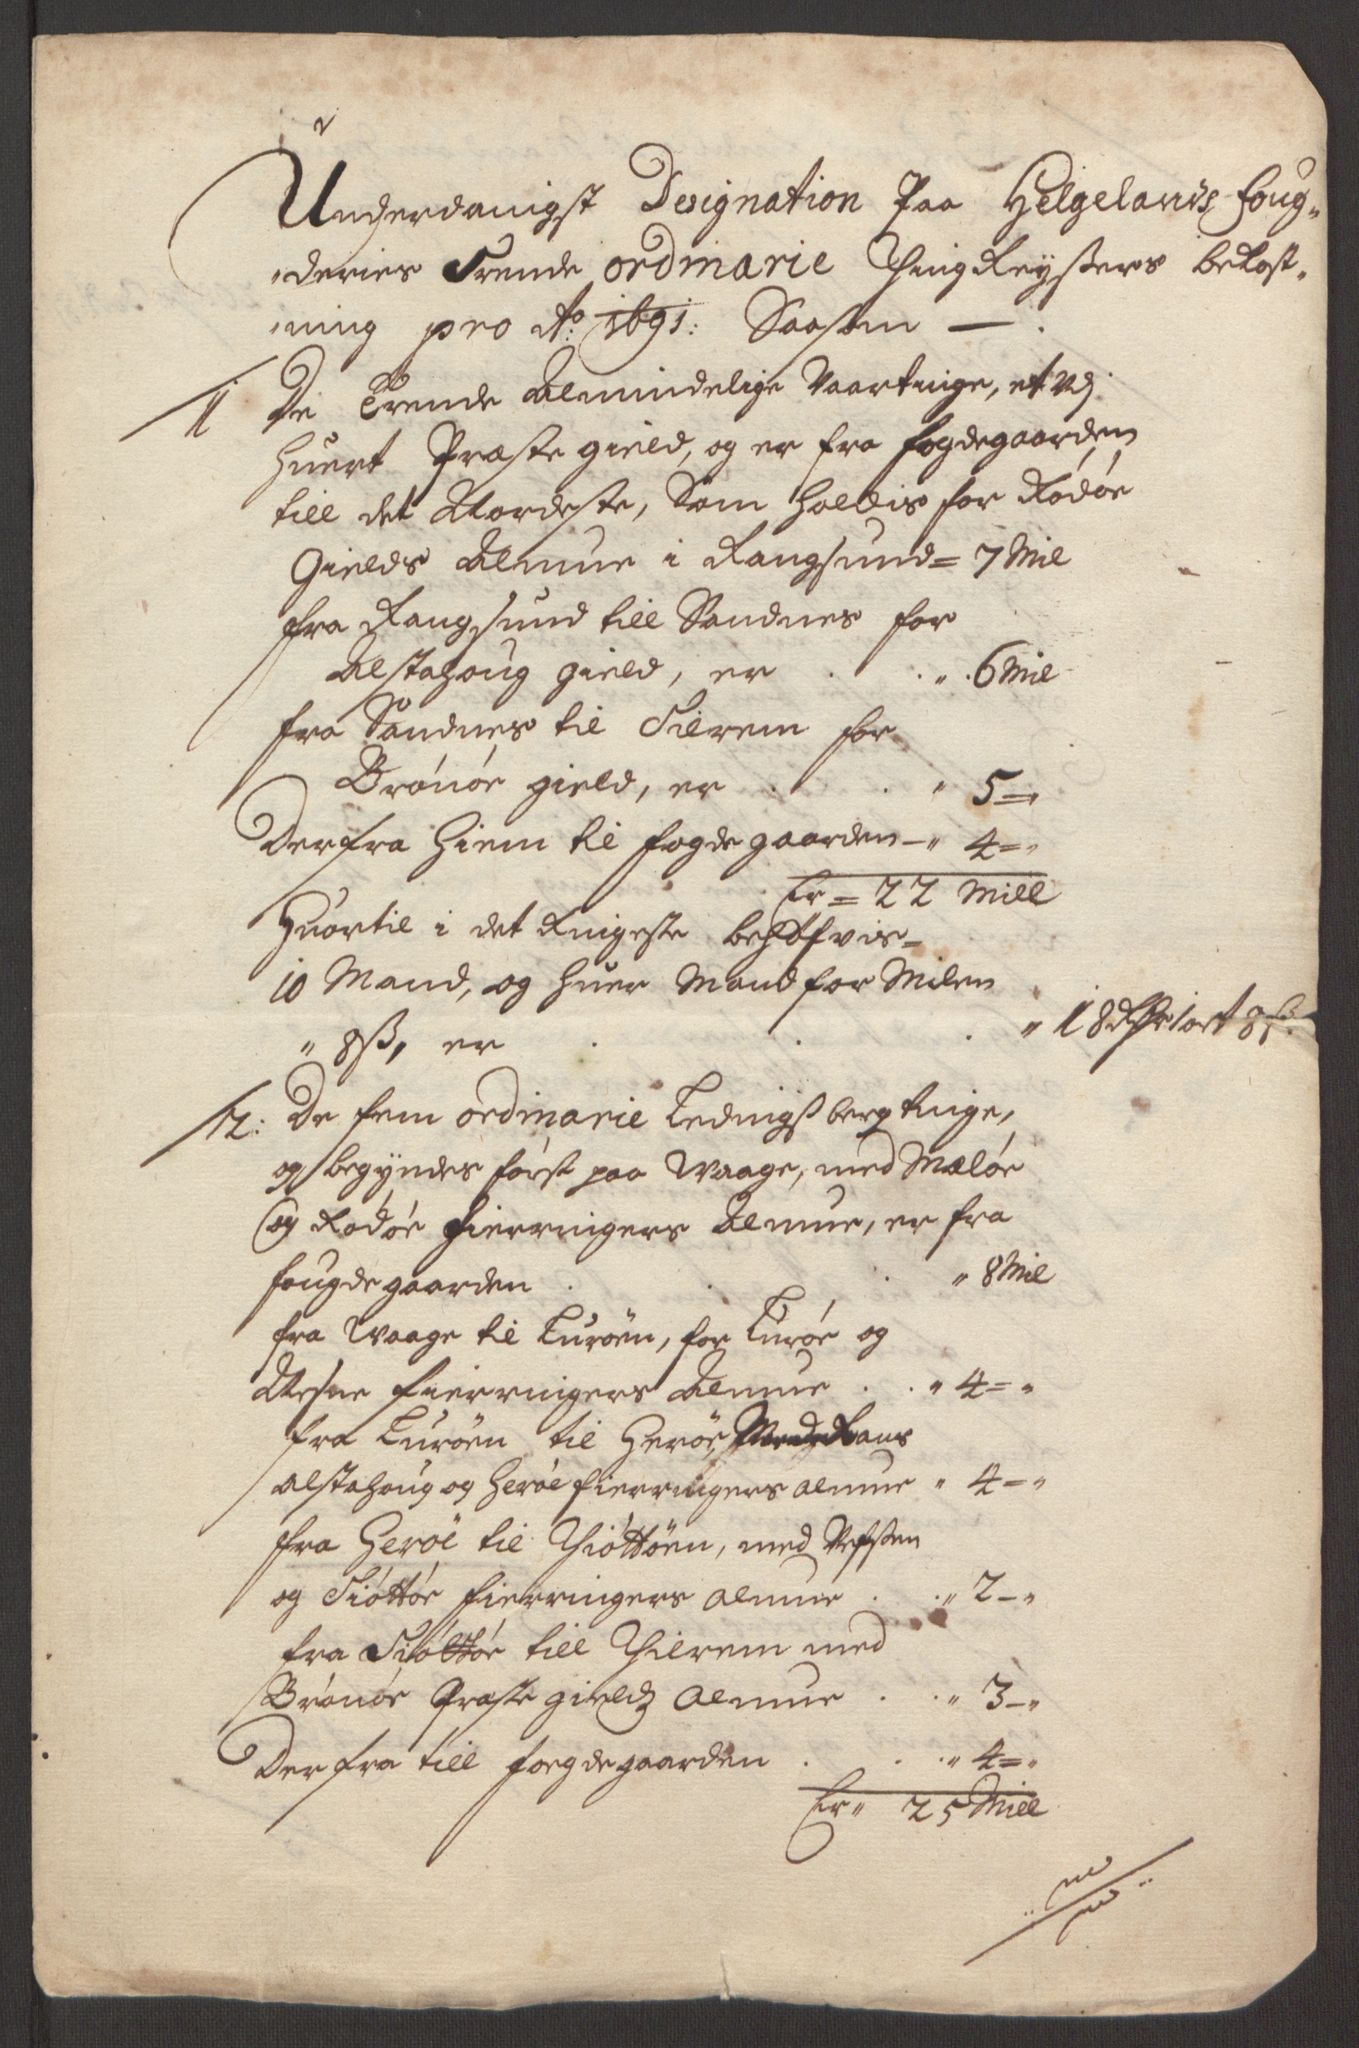 Underdanigst Designation Paa Helgelands foug„
„deries Trende ordinarie Ting Reyssers bekost„
„ning pro Ao: 1691: Saasom — .
1 De Trende Almindelige Vaartinge, et ved
huert Præste gield, og er fra fogdegaarden
till det Nordeste, Som holdis for Rödöe
Gields Almue i Rangsund = 7 Mil
fra Rangsund till Sandnes for
Alstahoug gield, er . . „ . 6 Mil
fra Sandnes til Tilrem for
Brönöe gield, er . . „ 5 —„
Derfra hiem til fogdegaarden — „ 4 = „
Er = 22 Mill
Huortil i det Ringeste behöfvis =
10 Mand, og huer Mand for Milen
„ 8ß, er . . . „ 18 Rdr 1 ort 8ß.
2: De fem ordinarie Ledingsberg tinge,
og begyndes först paa Waage, med Melöe
og Rödöe fierringers Almue, er fra
fougdegaarden . . . „ 8 Mil
fra Waage til Luröen, for Luröe og
Nesne fierringers Almue . . „ 4 = „
fra Luröen til Heröe, Med Rans
Alstahoug og Heröe fierringers almue „ 4 — „
fra Heröe til Thiöttöen, med Vefssen
og Tiöttöe fierringers almue . . „ 2 — „
fra Tiöttöe till Thilrem med
Brönöe Præste gields almue . . „ 3 — „
Derfra till foegdegaarden . . . „ 4 = „
Er „ 25 Mill